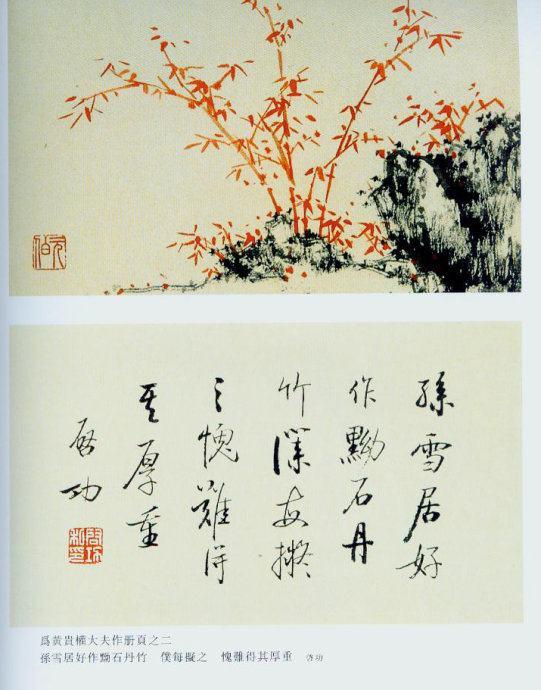 孫雪居好
作黝石丹
竹僕每擬
之愧難得
其厚重
啓功
為黃貴權大夫作册頁之二
孫雪居好作黝石丹竹 僕每擬之 愧難得其厚重 啓功